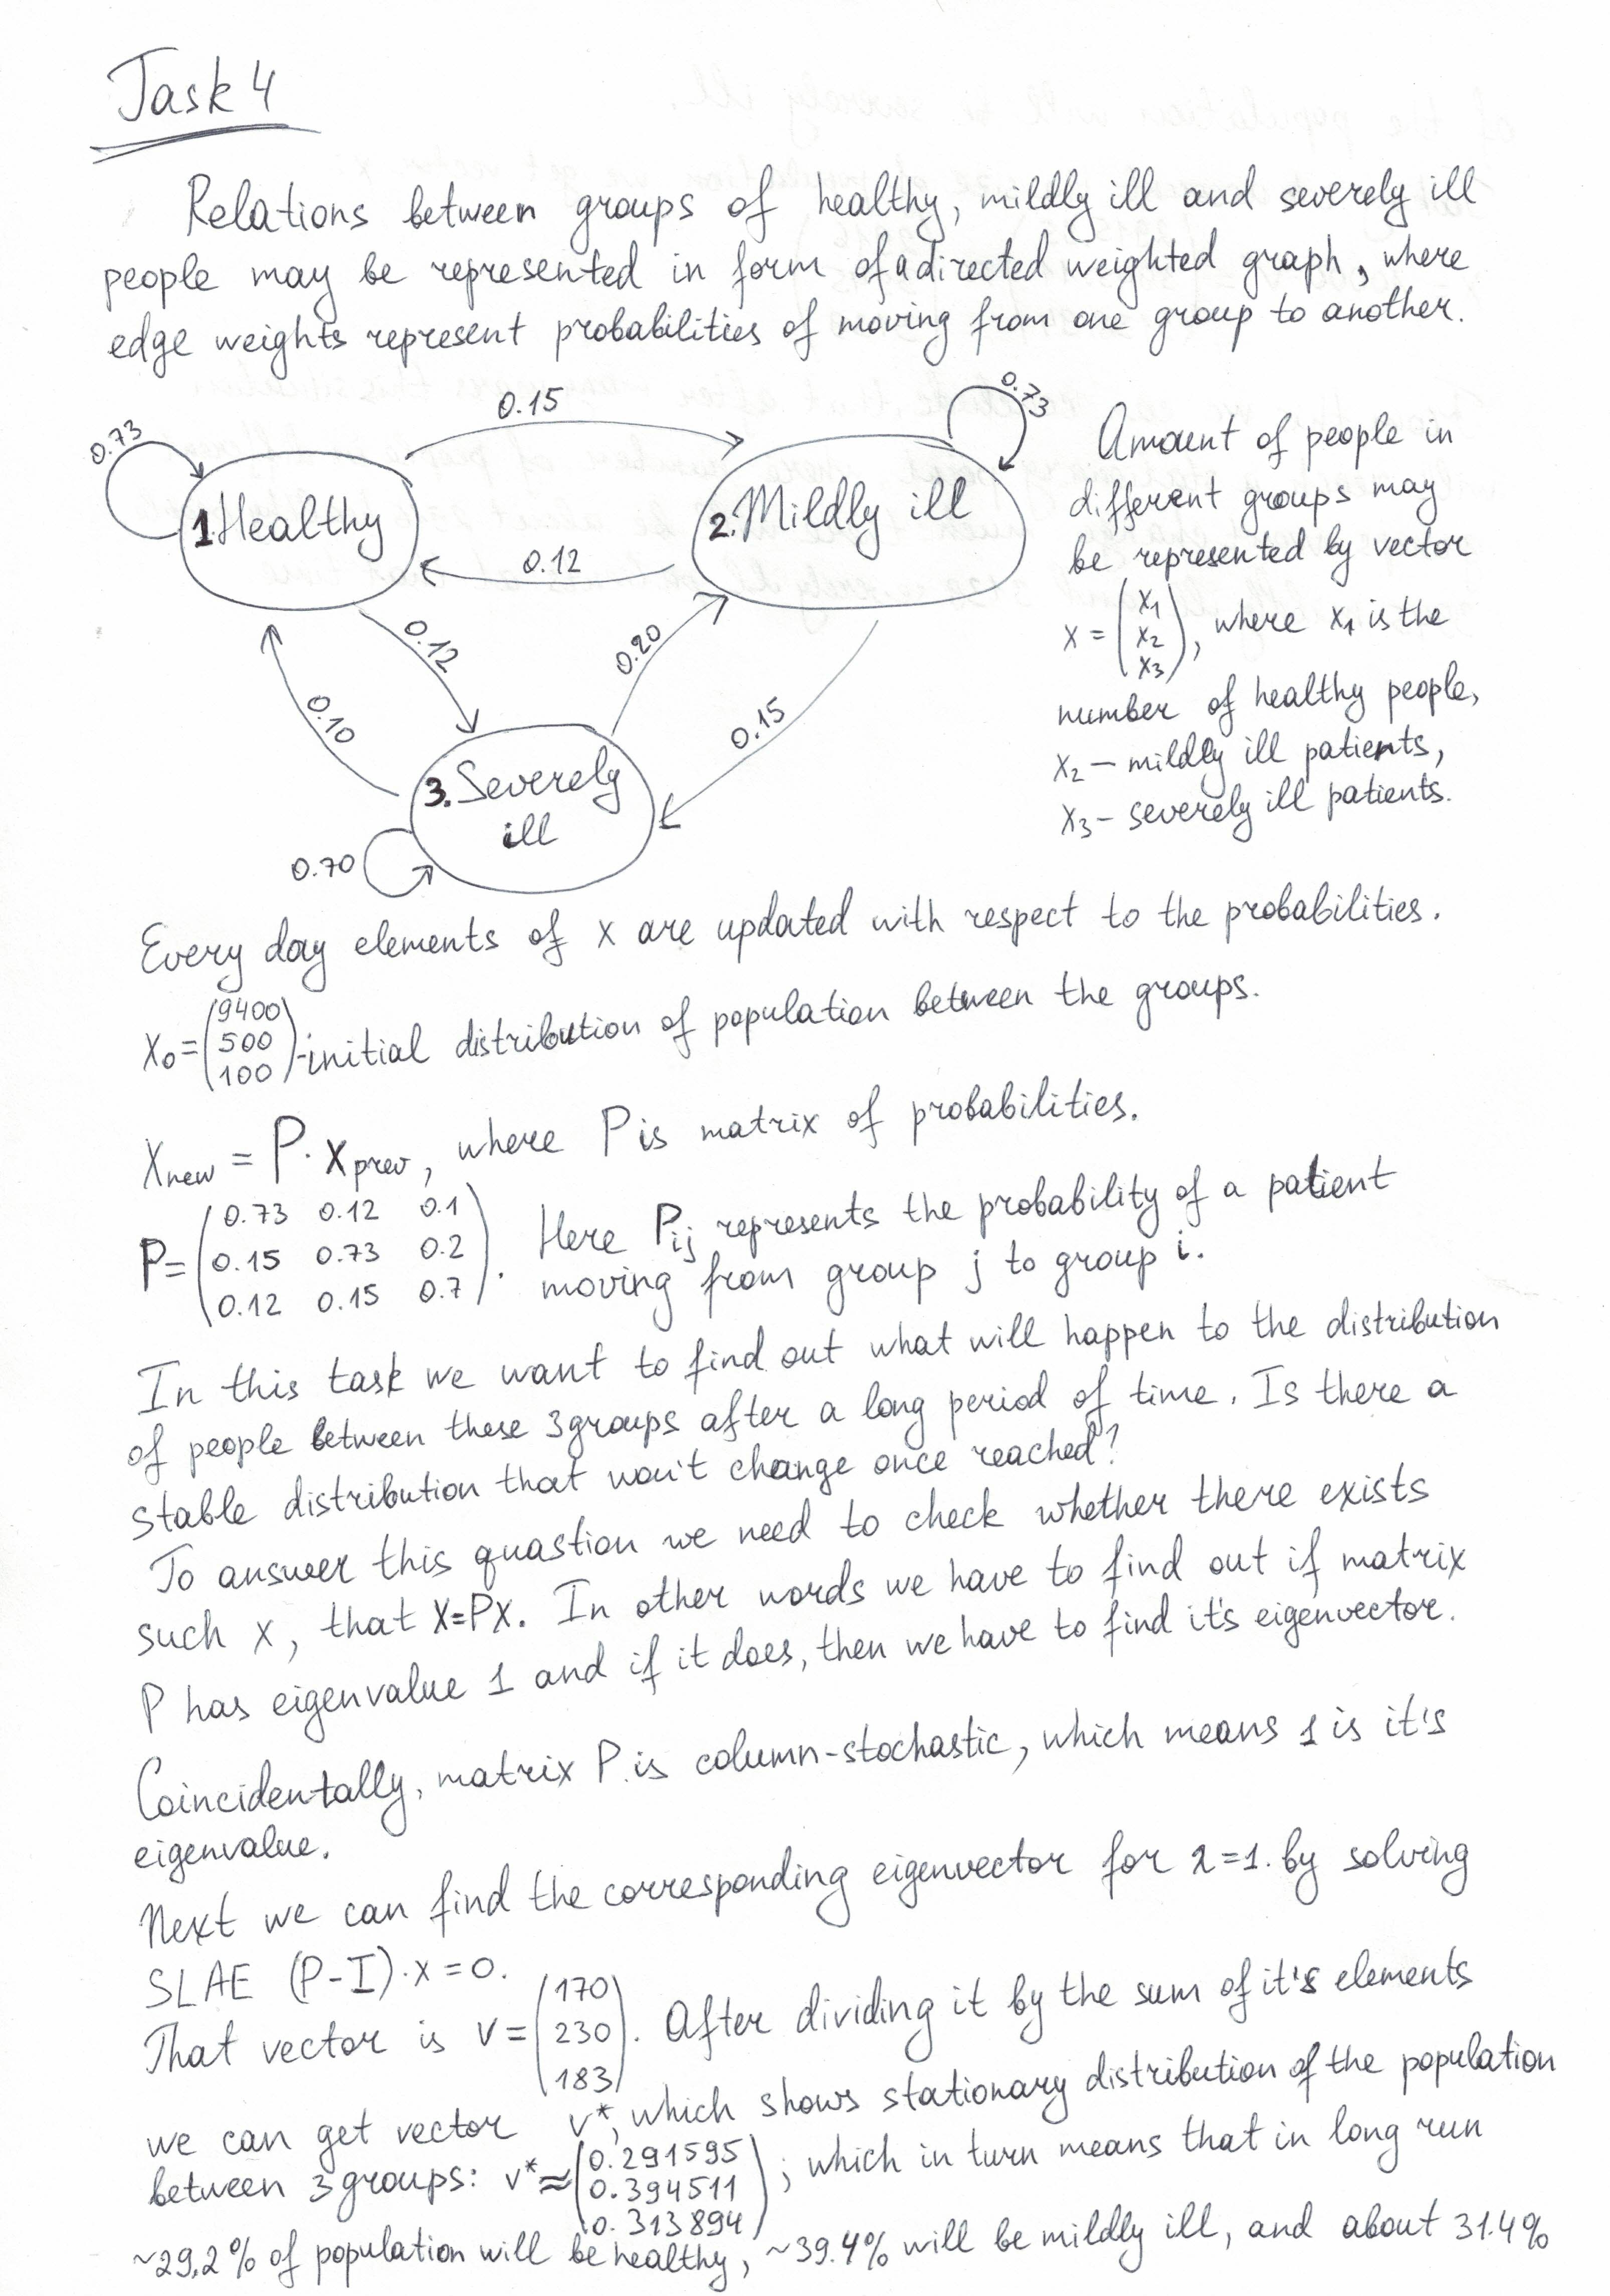 Task 4
Relations between groups of healthy, mildly ill and severely ill
people may be represented in form of a directed weighted graph, where
edge weights represent probabilities of moving from one group to another.
0.73
0.15
0.73
1. Healthy
2. Mildly ill
0.12
0.12
0.20
0.10
0.15
3. Severely
ill
0.70
Amount of people in
different groups may
be represented by vector
x = (x1
x2
x3), where x1 is the
number of healthy people,
x2 – mildly ill patients,
x3 – severely ill patients.
Every day elements of x are updated with respect to the probabilities.
x0 = (9400
500
100) - initial distribution of population between the groups.
Xnew = P · Xprev, where P is matrix of probabilities.
P = (0.73 0.12 0.1
0.15 0.73 0.2
0.12 0.15 0.7). Here Pij represents the probability of a patient
moving from group j to group i.
In this task we want to find out what will happen to the distribution
of people between these 3 groups after a long period of time. Is there a
stable distribution that won't change once reached?
To answer this quastion we need to check whether there exists
such x, that x=Px. In other words we have to find out if matrix
P has eigenvalue 1 and if it does, then we have to find it's eigenvector.
Coincidentally, matrix P is column-stochastic, which means 1 is it's
eigenvalue.
Next we can find the corresponding eigenvector for λ=1. by solving
SLAE (P-I)·x=0.
That vector is v = (170
230
183). After dividing it by the sum of it's elements
we can get vector v*, which shows stationary distribution of the population
between 3 groups: v* ≈ (0.291595
0.394511
0.313894); which in turn means that in long run
~29.2% of population will be healthy, ~39.4% will be mildly ill, and about 31.4%